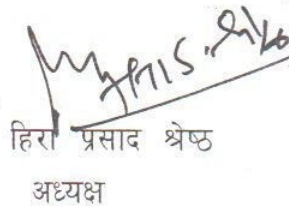 हिरा प्रसाद श्रेष्ठ
अध्यक्ष